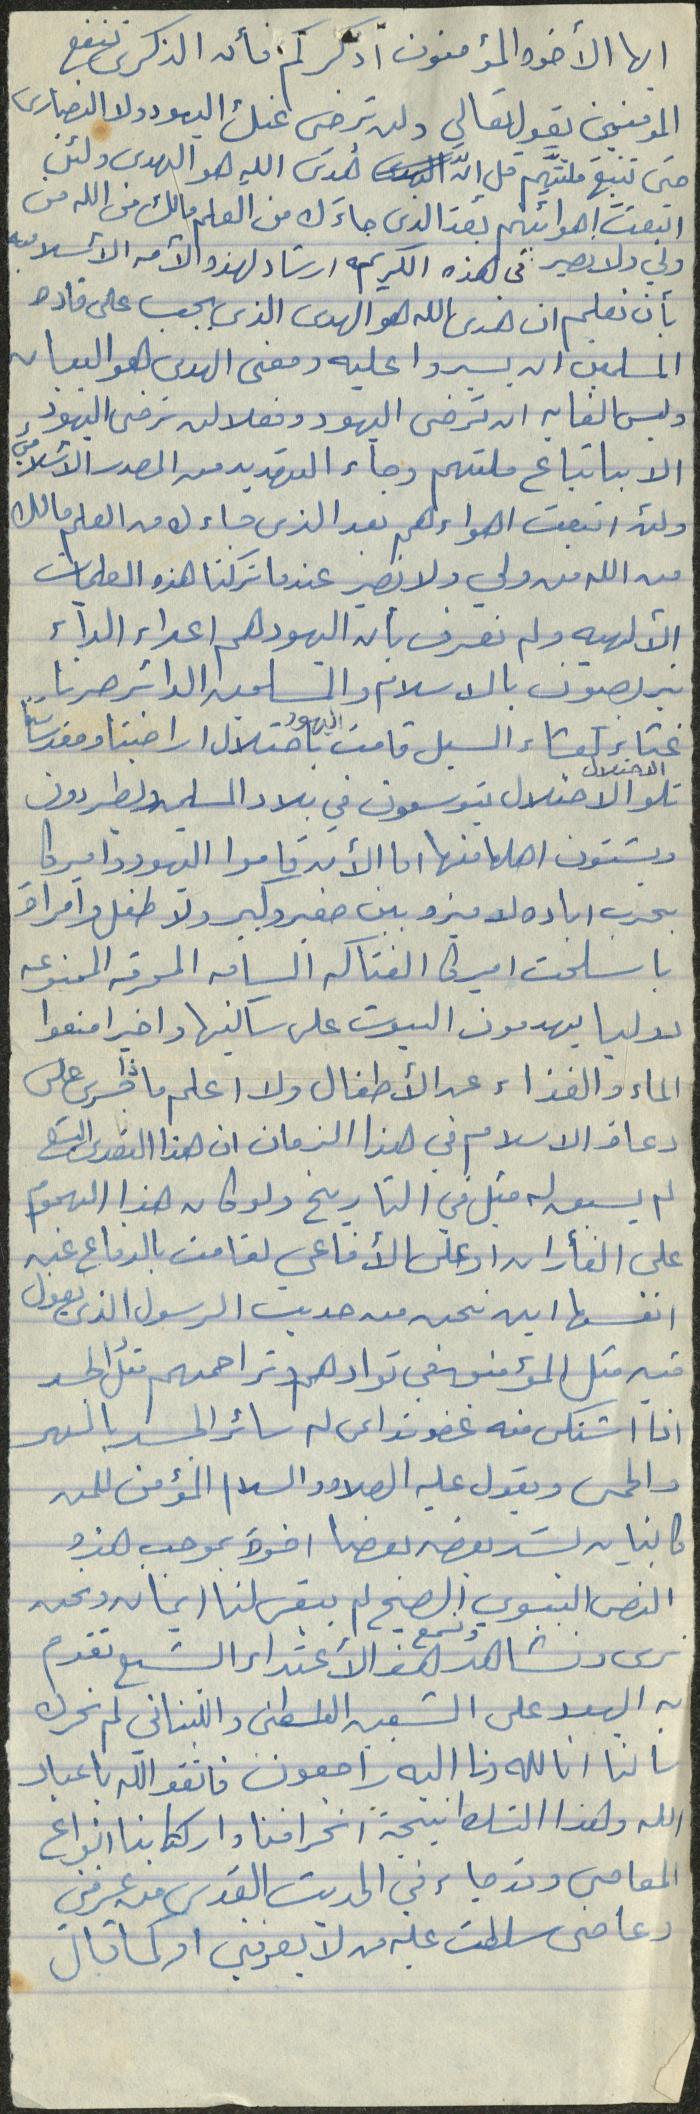 ايها الأخوه المؤمنون أذكركم فأن الذكرى تنفع
المؤمنين يقول تعالى ولن ترضى عنك اليهود ولا النصارى
حتى تتبع ملتهم قل ان هدى الله هو الهدى ولئن
اتبعت اهوائهم بعد الذي جاءك من العلم مالك من الله من
ولي ولا نصير في هذه الكريمه ارشاد لهذه الأمه الاسلاميه
بأن نعلم ان هدى الله هو الهدى الذي يجب على قاده
المسلمين ان يسيروا عليه ومعنى الهدى هو البيان
وليس الغايه ان ترضى اليهود وفعلا لن ترضى اليهود
الا باتباع ملتهم وجاء التهديد من المصدر الاسلامي
ولئن اتبعت اهواءهم بعد الذي جاءك من العلم مالك
من الله من ولي ولا نصير عندما تركنا هذه التعليمات
الألهيه ولم نعرف بأن اليهود هم اعداء الداء
يتربصون بالاسلام والمسلمين الدائر صرنا
غثاء كغثاء السيل قامت اليهود باحتلال اراضينا ومقدساتنا
تلو الاحتلال الاحتلال يتوسعون في بلاد المسلمين ويطردون
ويشتتون اهلها منها اما الأن قاموا اليهود وامريكا
بحرب اباده لا ميزه بين صغير وكبير ولا طفل وامرأة
باسلحت امريكا الفتاكه السامه المحرقه الممنوعه
دوليا يهدمون البيوت على ساكنيها واخيرا منعوا
الماء والغذاء عن الأطفال ولا اعلم ماذا جرى على
دعاة الاسلام في هذا الزمان ان هذا التعدي البشع
لم يسبق له مثيل في التاريخ ولو كان هذا الهجوم
على الفأران او على الأفاعي لقامت بالدفاع عن
انفسها اين نحن من حديث الرسول الذي يقول
فيه مثل المؤمنين في توادهم وتراحمهم مثل الجسد
اذا اشتكى منه عضو تداعى له سائر الجسد بالسهر
والحمى ويقول عليه الصلاه والسلام المؤمن للمؤمن
كالبنيان يشد بعضه بعضا اخوة بموجب هذه
النص النبوي الصحيح لم يبقى لنا ايمان ونحن
نرى ونشاهد ونسمع هذه الأعتداء البشع تقوم
به اليهود على الشعبين الفلسطيني واللبناني لم نحرك
ساكنا انا لله وانا اليه راجعون فاتقوا الله يا عباد
الله وهذا التسلط نتيجة انحرافنا وارتكابنا انواع
المعاصي وقد جاء في الحديث القدسي من عرفني
وعاصى سلطت عليه من لا يعرفني او كما قال